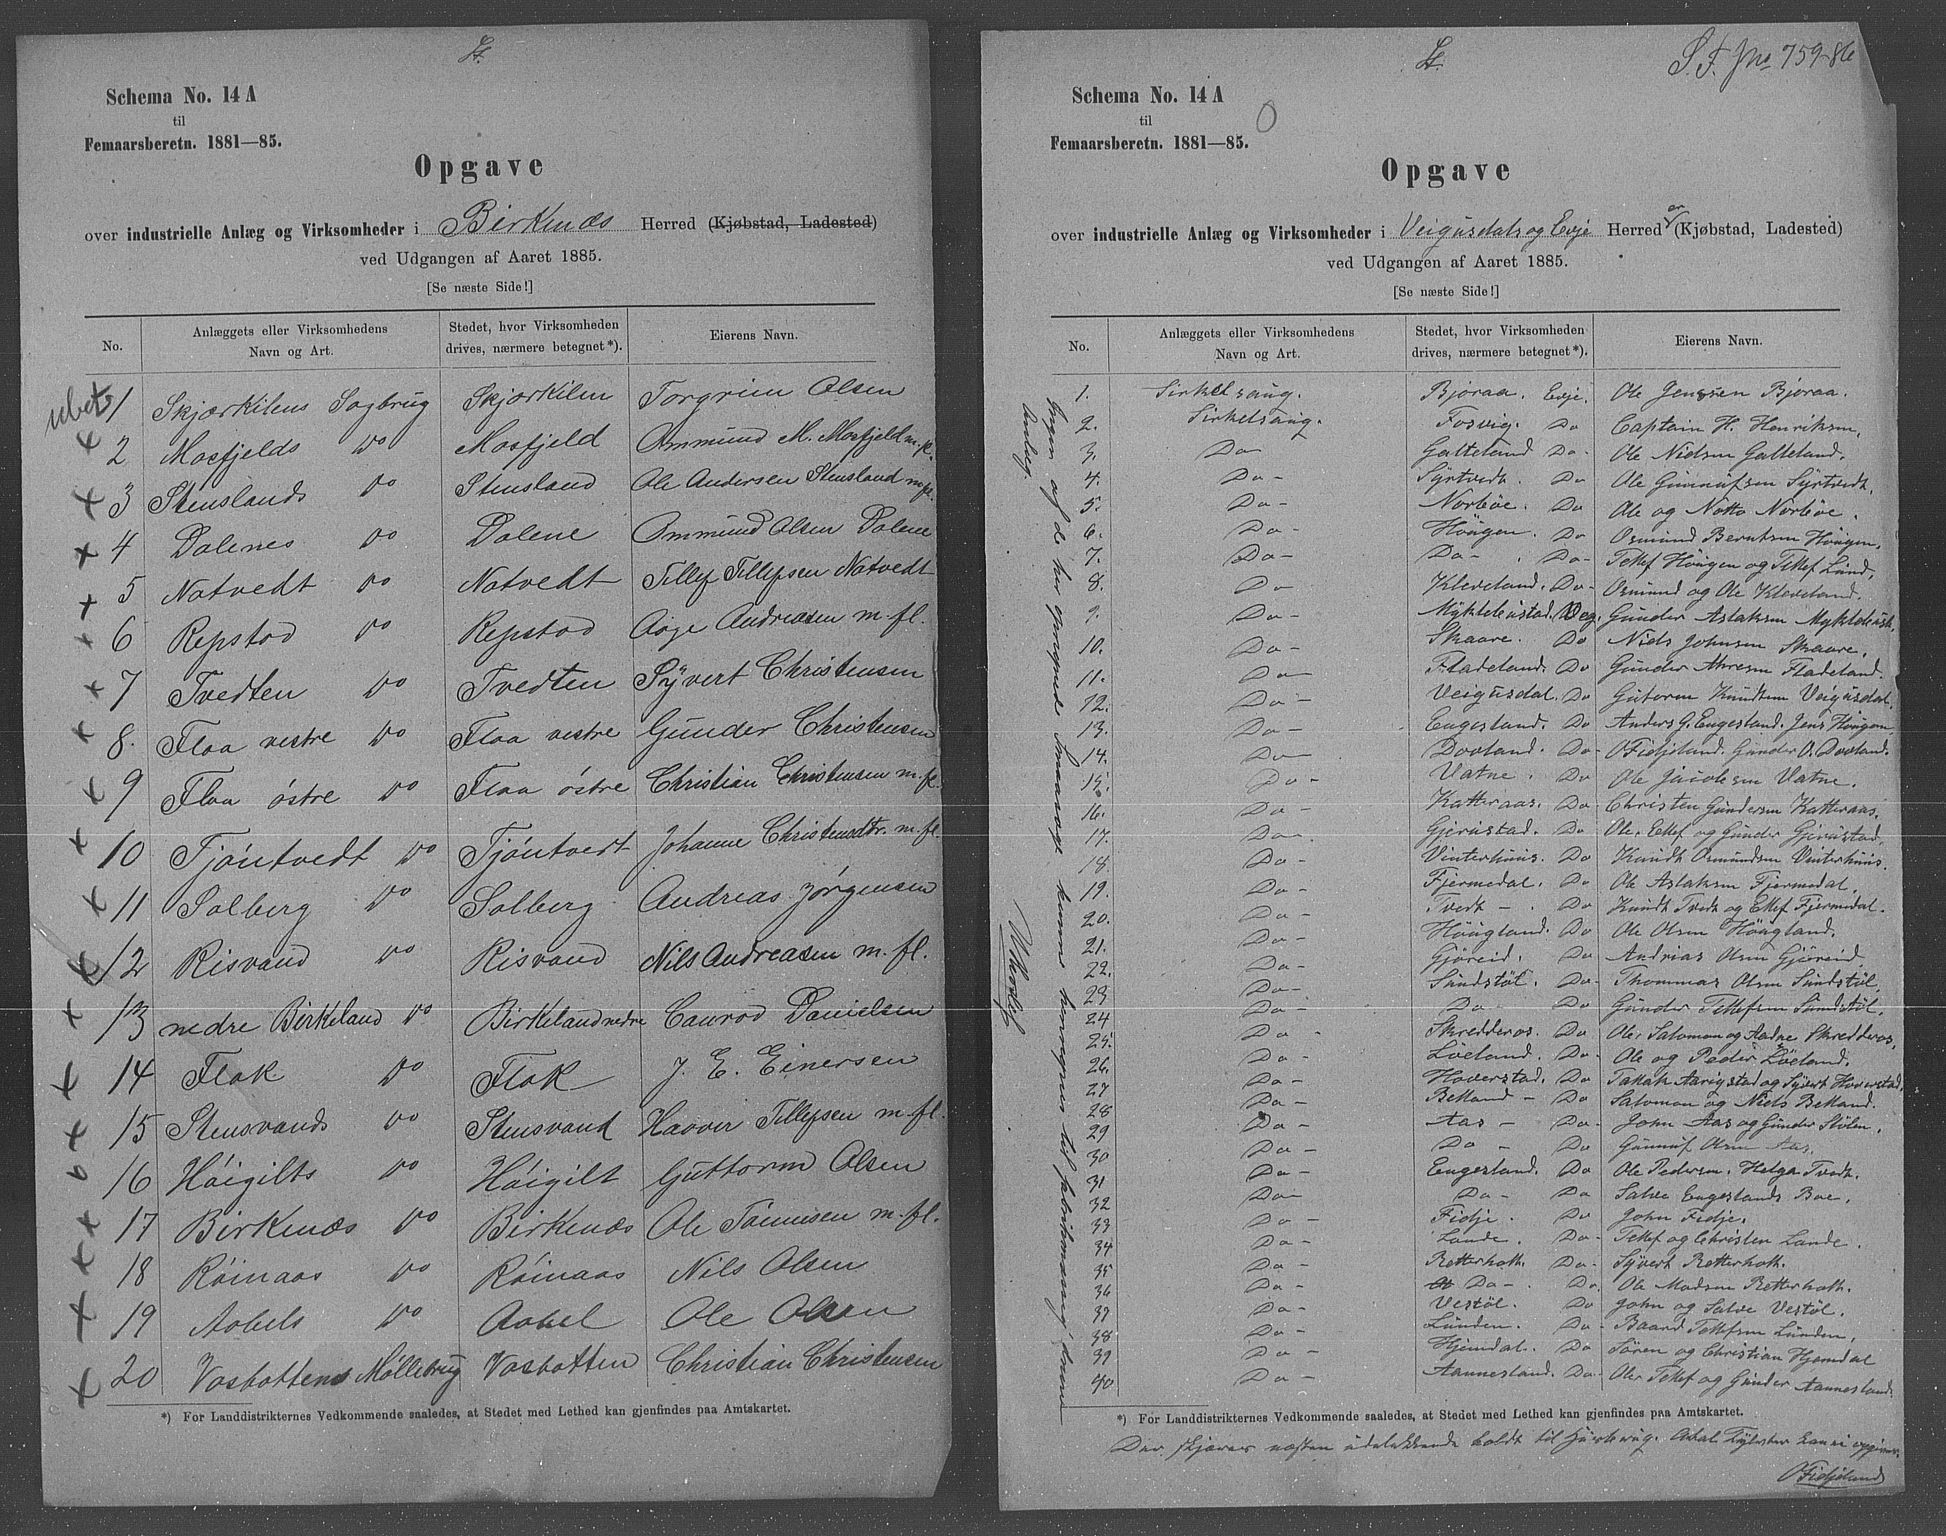 St.
Schema No. 14 A
til
Femaarsberetn. 1881—85.
Opgave
over industrielle Anlæg og Virksomheder i Birkenæs Herred (Kjøbstad, Ladested)
ved Udgangen af Aaret 1885.
[Se næste Side!]
No. Anlæggets eller Virksomhedens Navn og Art. Stedet, hvor Virksomheden drives, nærmere betegnet*). Eierens Navn.
1 Skjærkilens Sagbrug Skjærkilen Torgrim Olsen
2 Mosfjelds do Mosfjeld Ommund M. Mosfjeld m. fl.
3 Stenslands do Stensland Ole Andersen Stensland m. fl.
4 Dalenes do Dalene Ommund Olsen Dalene
5 Natvedt do Natvedt Tillef Tillefsen Natvedt
6 Repstad do Repstad Aage Andreasen m. fl.
7 Tvedten do Tvedten Syvert Christensen
8. Flaa vestre do Flaa vestre Gunder Christensen
9 Flaa østre do Flaa østre Christian Christensen m. fl.
10 Tjöntvedt do Tjöntvedt Johanne Christensdtr. m. fl.
11 Solberg do Solberg Andreas Jörgensen
12 Risvand do Risvand Nils Andreasen m. fl.
13 nedre Birkeland do Birkeland nedre Conrad Danielsen
14 Flak do Flak J. E. Einersen
15 Stensvands do Stensvand Haavor Tillefsen m. fl.
16 Höigilts do Höigilt Guttorm Olsen
17 Birkenæs do Birkenæs Ole Tönnesen m. fl.
18 Röinaas do Röinaas Nils Olsen
19 Aabels do Aabel Ole Olsen
20 Vasbottens Møllebrug Vasbotten Christian Christensen
*) For Landdistrikternes Vedkommende saaledes, at Stedet med Lethed kan gjenfindes paa Amtskartet.
St.
S. F. Jno 759-86
Schema No. 14 A
til
Femaarsberetn. 1881—85.
Opgave
over industrielle Anlæg og Virksomheder i Veigusdals og Evje Herreder (Kjøbstad, Ladested)
ved Udgangen af Aaret 1885.
[Se næste Side!]
No. Anlæggets eller Virksomhedens Navn og Art. Stedet, hvor Virksomheden drives, nærmere betegnet*). Eierens Navn.
1. Sirkelsaug. Bjoraa. Evje. Ole Jenssen Bjoraa.
2. Sirkelsaug. Fosvig. Do Captain H. Henriksen.
3. Do Galteland Do- Ole Nielsen Galteland.
4. Do- Syrtvedt. Do Ole Gunnufsen Syrtvedt.
5. Do- Norböe. Do Ole og Notto Norböe.
6. Do- Höugen. Do Osmund Berntsen Höugen.
7. Do- Do- Do- Tellef Höugen og Tellef Lund.
8. Do- Kleveland. Do- Osmund og Ole Kleveland.
9. Do- Mykleбustad. Veg. Gunder Aslaksen Myklebust.
10. Do- Skaare. Do Niels Johnsen Skaare.
11. Do- Fladeland. Do Gunder Fladeland.
12. Do- Veigusdal. Do Gutorm Knudsen Veigusdal.
13. Do- Engesland. Do Anders G. Engesland. Jens Höugen
14. Do- Dovland. Do- O Fidjeland. Gunder O. Dovland.
15. Do- Vatne. Do Ole Jacobsen Vatne.
16. Do- Katteraas. Do- Christen Gundersen Katteraas.
17. Do- Gjerustad. Do Ole, Ellef og Gunder Gjerustad.
18. Do- Vinterhuus. Do Knudt Osmundsen Vinterhuus.
19. Do- Fjermedal. Do Ole Aslaksen Fjermedal.
20. Do- Tvedt - Do Knudt Tvedt og Ellef Fjermedal.
21. Do- Höugland. Do Ole Olsen Höugland.
22. Do- Gjöreid. Do Andrias Olsen Gjöreid
23 Do- Sundstöl. Do- Thommas Olsen Sundstöl.
24 Do- Do- Do Gunder Tellefsen Sundstöl.
25. Do- Skredderos. Do Ole, Salomon og Aadne Skredderos.
26. Do- Löeland. Do- Ole og Peder Löeland.
27 Do- Hoverstad. Do og Syvert Hoverstad.
28 Do- Belland - Do Salomon og Niels Belland.
29 Do- Aas - Do- John Aas og Gunder Stölen.
30 Do- Do- Do Gunnuf Olsen Aas.
31 Do- Engesland. Do Ole Pedersen. Helga Tvedt.
32 Do- Do- Do Salve Engeslands Boe.
33 Do- Fidje. Do John Fidje.
34 Do- Lande. Do- Tellef og Christen Lande.
35 Do- Retterholt. Do- Syvert Retterholt.
36 Do- Do- Do Ole Madsen Retterholt.
37 Do- Vestöl. Do John og Salve Vestöl.
38 Do- Lunden. Do- Baard Tellefsen Lunden.
39 Do- Hjemdal. Do Sören og Christian Hjemdal
40 Do- Aannesland. Do- Ole, Tellef og Gunder Aannesland.
*) For Landdistrikternes Vedkommende saaledes, at Stedet med Lethed kan gjenfindes paa Amtskartet.
Der skjæres næsten udelukkende boldt til Huusbrug. Antal Tylvter kan ei opgives.
O Fidjeland
Ingen af de her opregnede Smaasauge kunne henregnes til fabrikmæssig drevne
Anlæg.